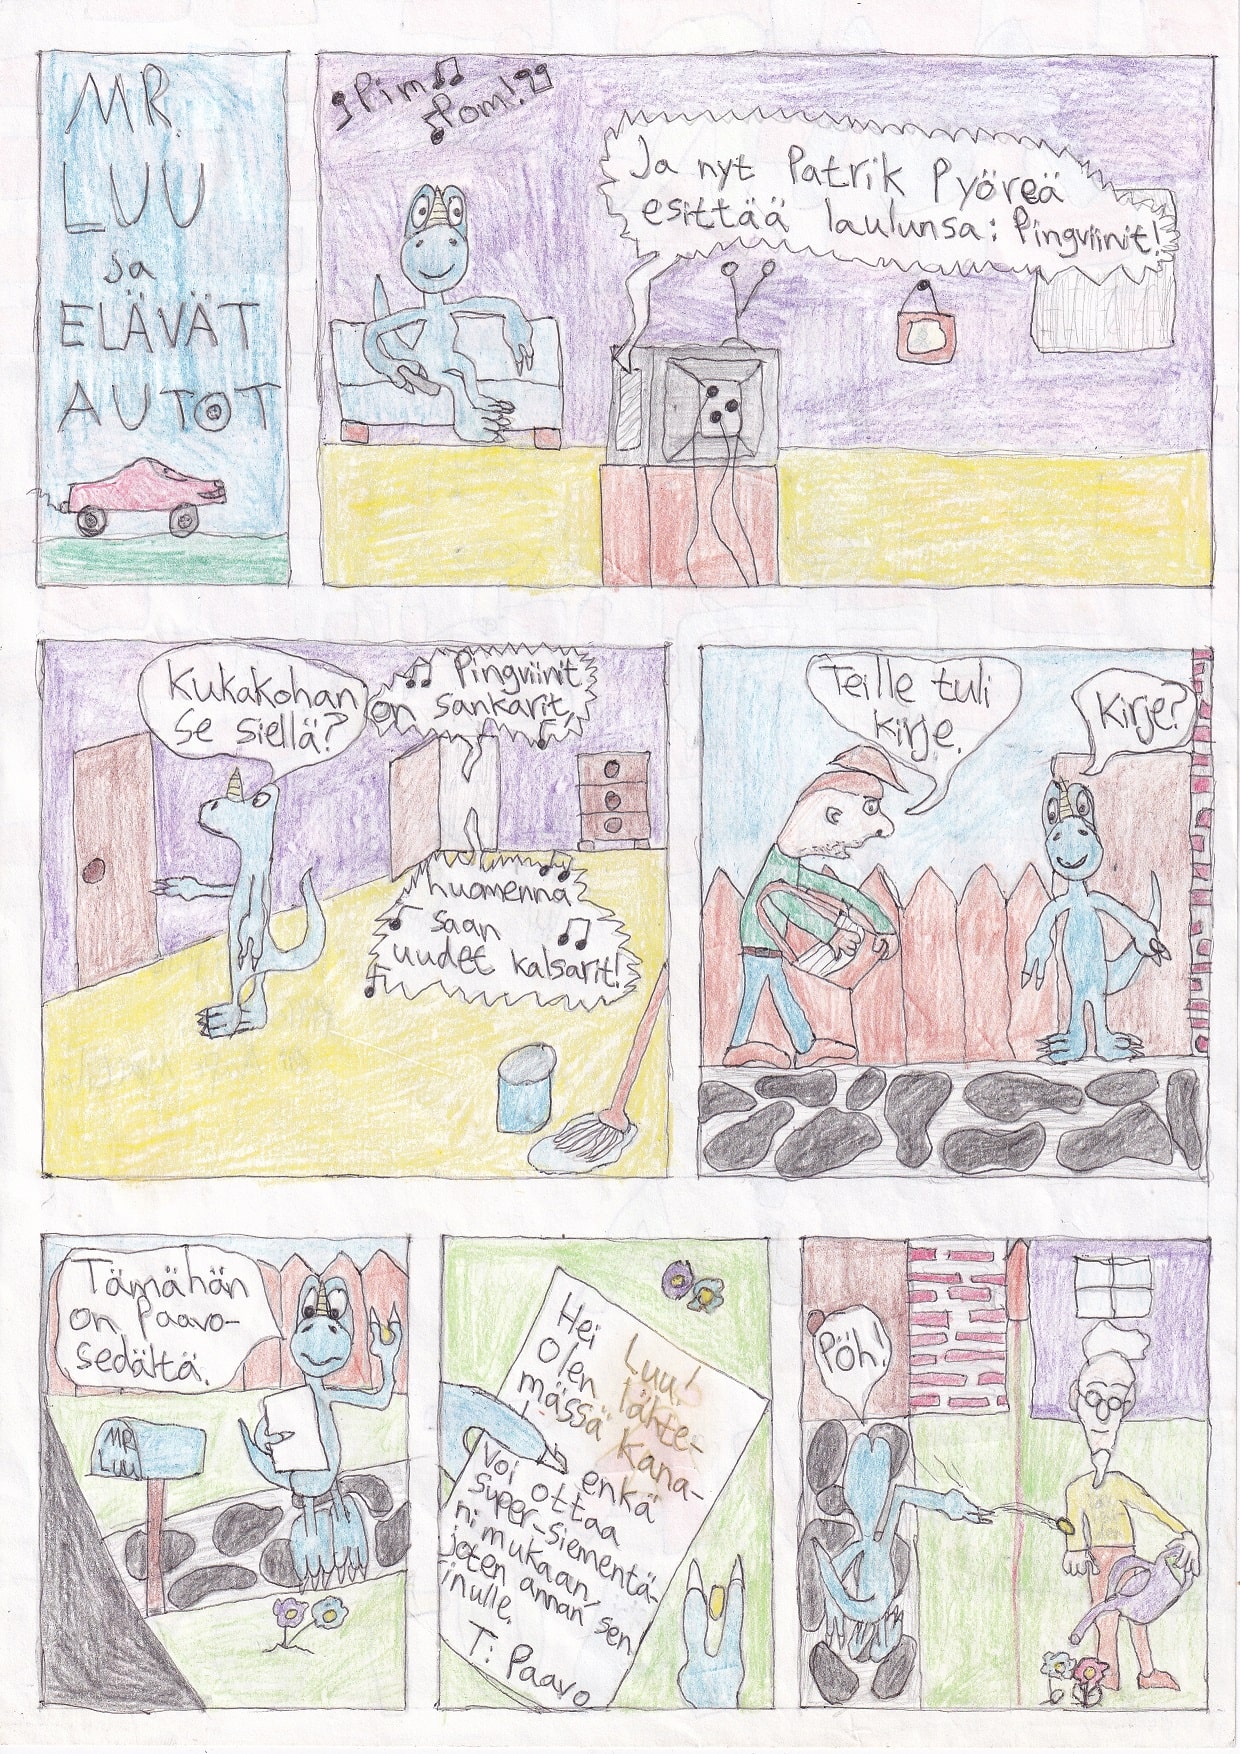 MR.
LUU
ja
ELÄVÄT
AUTOT
Pim
Pom!
Ja nyt Patrik Pyöreä
esittää laulunsa: Pingviinit!
Kukakohan
se siellä?
Pingviinit
on sankarit,
huomenna
saan
uudet kalsarit!
Teille tuli
kirje.
Kirje?
Tämähän
on Paavo-
sedältä.
MR
LUU
Hei Luu!
Olen lähte-
mässä Kana-
enkä
Voi ottaa
super-siementä-
ni mukaan,
joten annan sen
inulle.
T: Paavo
Pöh!